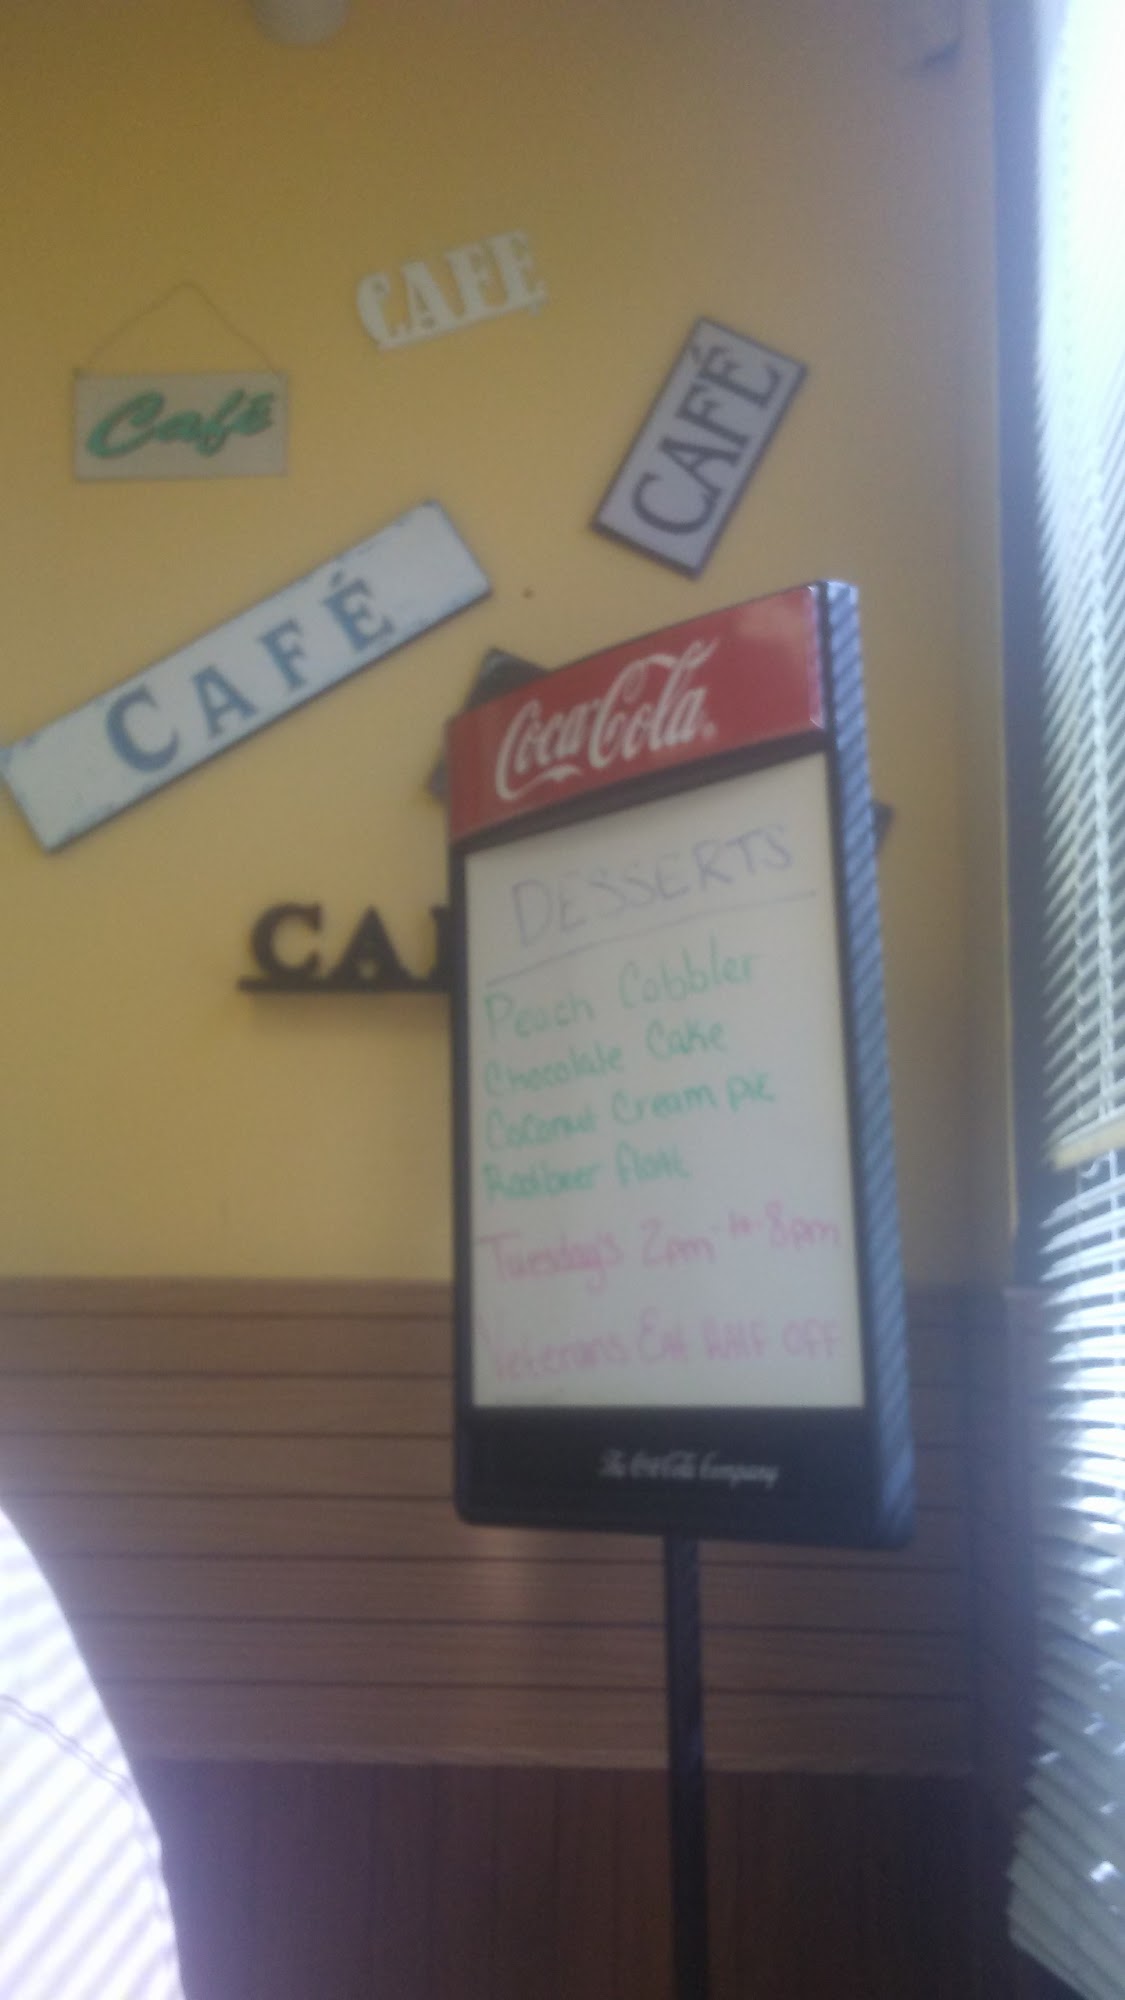 CAFE
Café
CAFÉ
CAFÉ
Coca-Cola
DESSERTS
Peach Cobbler
Chocolate Cake
Coconut Cream pie
Rootbeer float
Tuesday's 2pm to 8pm
Veterans Eat HALF OFF
The Coca-Cola Company